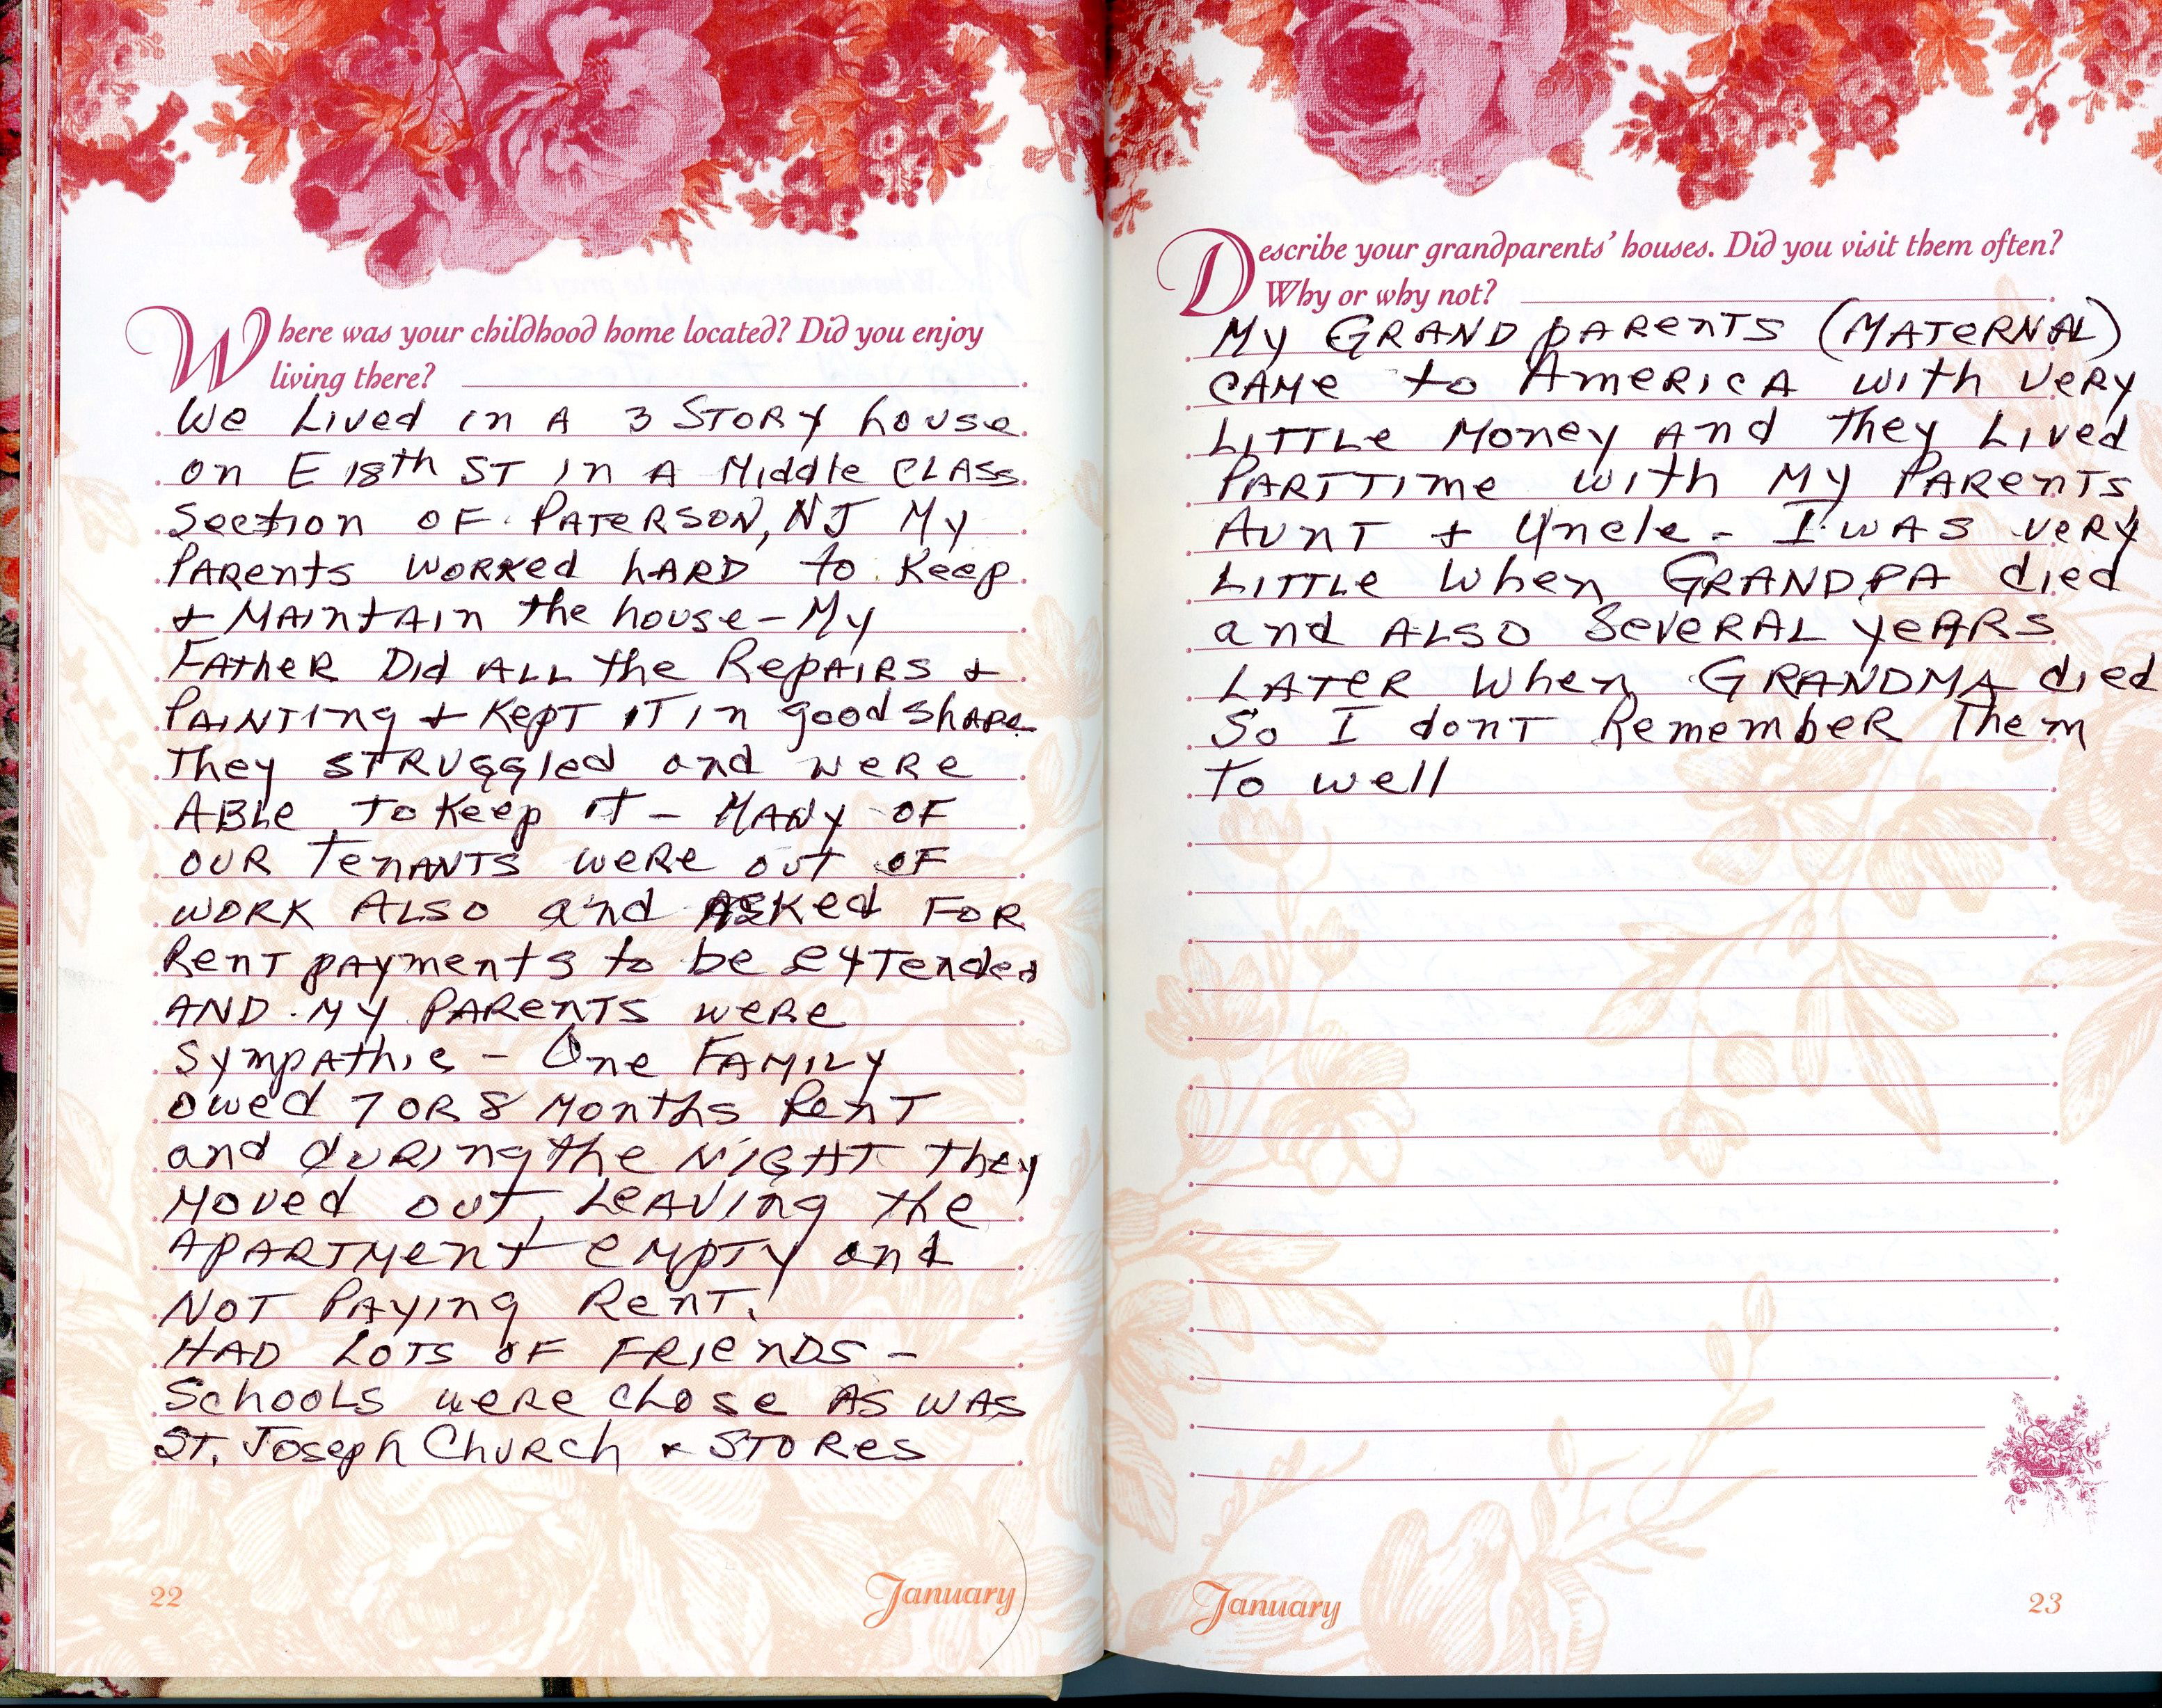 Where was your childhood home located? Did you enjoy
living there?
We Lived in A 3 STORY house
on E 18th ST in A Middle CLASS
Section OF PATERSON, NJ My
PARents WORKed hARD to Keep
+ MAIntAIn the house - My
FATheR Did ALL the RepAIRS +
PAINTIng + KepT IT in good shApe
They STRUggled and weRe
ABLe To Keep it - MANy OF
OUR TenANTS weRe out OF
WORK ALSO and ASKed FOR
RenT pAyments to be exTended
AND MY PARenTS weRe
SympAthic - One FAMILY
owed 7 OR 8 Months RenT
and dURIng the NIGHT They
Moved out, LeAVing the
APARTMent eMpTY and
NOT PAYIng RenT.
HAD LOTS OF FRIeNDS -
SchooLS weRe chose AS WAS
ST. Joseph ChURch + STORes
22
January
Describe your grandparents' houses. Did you visit them often?
Why or why not?
My GRAND pARenTS (MATeRNAL)
CAMe to AmeRICA with VeRy
LITTLe Money And They Lived
PARTTIme with My PARenTS
AunT + Uncle - I WAS veRy
LITTLe When GRANDPA died
and ALSO SeveRAL yeARS
LATeR When GRANDMA died
So I donT RemembeR Them
To well
January
23